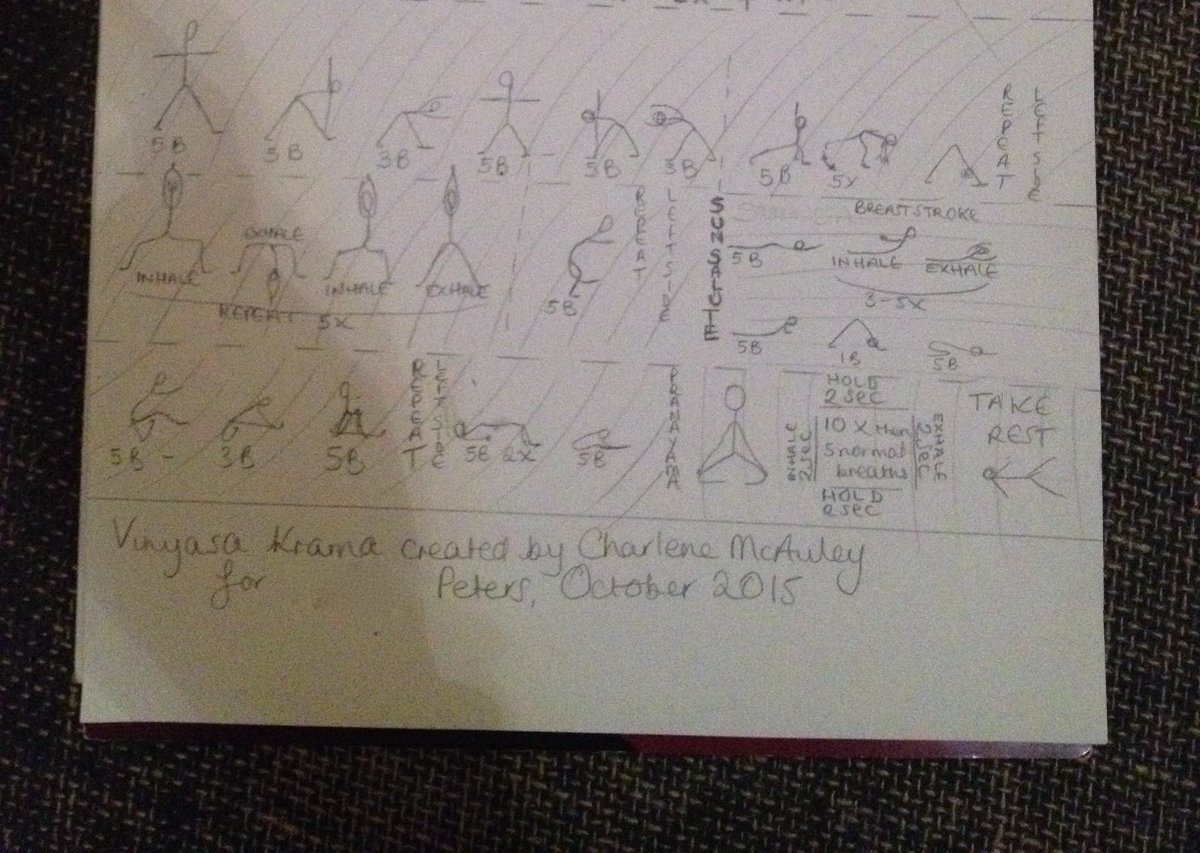 5B 3B 3B 5B 5B 3B 5B 5X REPEAT LEFT SIDE
INHALE EXHALE INHALE EXHALE
REPEAT 5X
5B
REPEAT LEFT SIDE
SUN SALUTE
BREASTSTROKE
5B INHALE EXHALE
3-5X
5B 1B 5B
5B - 3B 5B REPEAT LEFT SIDE 5B 2X 5B
PRANAYAMA
INHALE 2 SEC
HOLD
2 SEC
10 X then
5 normal
breaths
EXHALE 2 SEC
HOLD
2 SEC
TAKE
REST
Vinyasa Krama created by Charlene McAuley
for Peters, October 2015